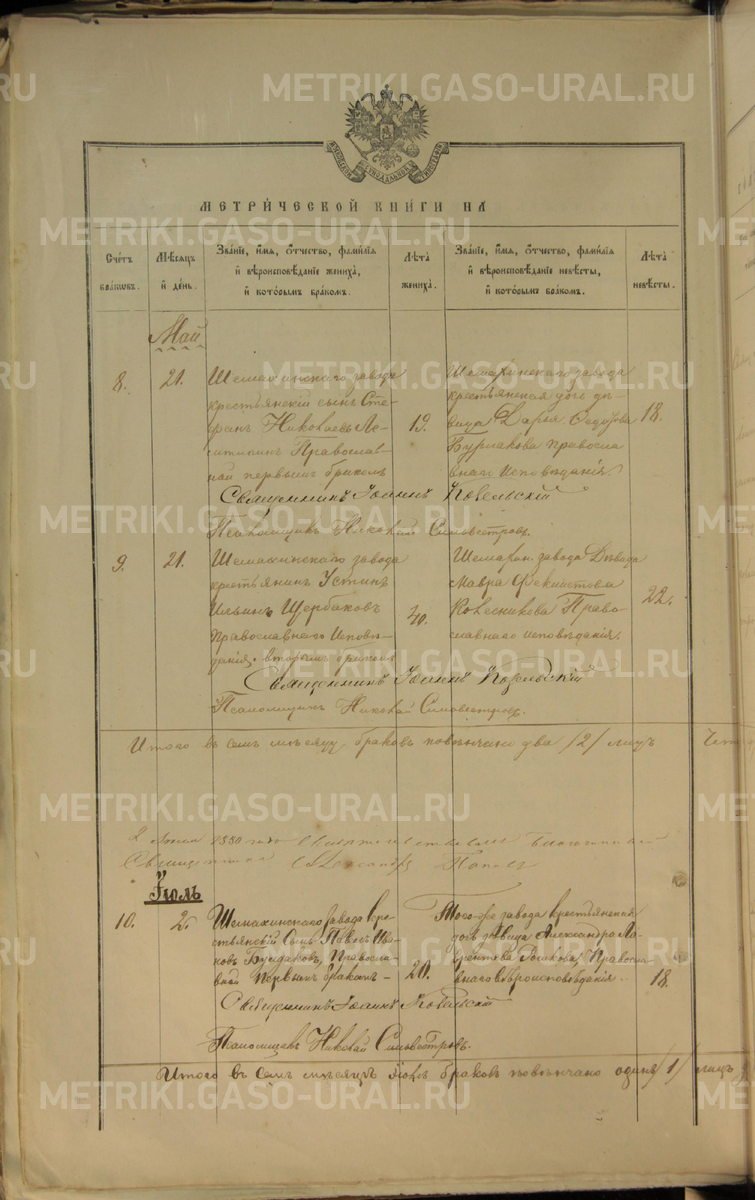 METRIKI.GASO-URAL.RU
МЕТРИ́ЧЕСКОЙ КНИ́ГИ НА
Счётъ браковъ.
Мѣсяцъ и день.
Зва́нїе, и́мя, о́тчество, фами́лїя и вѣроисповѣ́данїе жениха̀, и кото́рымъ бра́комъ.
Лѣта̀ жениха̀.
Зва́нїе, и́мя, о́тчество, фами́лїя и вѣроисповѣ́данїе невѣ́сты, и кото́рымъ бра́комъ.
Лѣта̀ невѣ́сты.
Май
8.
21.
Шемахинскаго завода
крестьянскій сынъ Сте-
фанъ Николаевъ
Православ-
ной первымъ бракомъ
19.
Шемахинскаго завода
крестьянская дочь дѣ-
вица Дарья Ѳедорова
Бурлакова Правосла-
внаго исповѣданія
18.
Священникъ Іоаннъ
Псаломщикъ Николай Сильвестровъ.
9.
21.
Шемахинскаго завода
крестьянинъ Устинъ
Ильинъ Щербаковъ
Православнаго Исповѣ-
данія, вторымъ бракомъ
40.
Шемахин. завода Дѣвица
Мавра
Колесникова Право-
славнаго исповѣданія.
22.
Священникъ Іоаннъ
Псаломщикъ Николай Сильвестровъ.
Итого въ семъ мѣсяцѣ браковъ повѣнчано два /2/ лицъ
1880 года Благочинный
Священникъ Александръ Поповъ
Іюль
10.
2.
Шемахинскаго завода кре-
стьянскій Сынъ Павелъ Ива-
новъ Булдаковъ, Правосла-
вной Первымъ бракомъ
20.
Того же завода крестьянская
дочь дѣвица Александра Ла-
врентова Правосла-
внаго вѣроисповѣданія
18.
Священникъ Іоаннъ
Псаломщикъ Николай Сильвестровъ.
Итого въ семъ мѣсяцѣ Іюлѣ браковъ повѣнчано одинъ /1/ лицъ